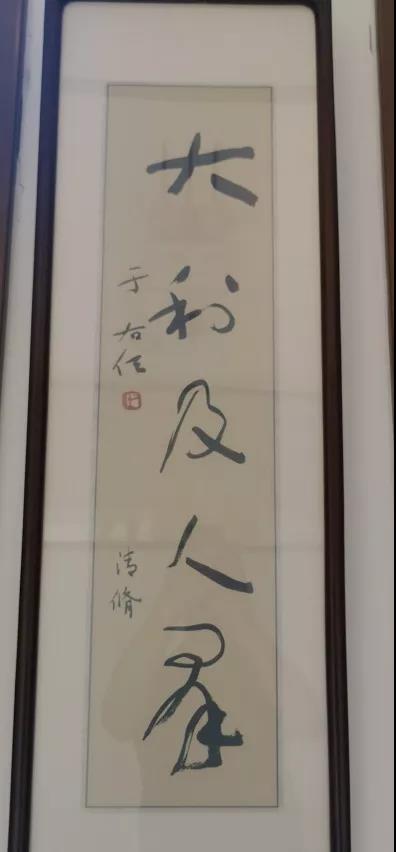 大利及人羣
于右任
清脩